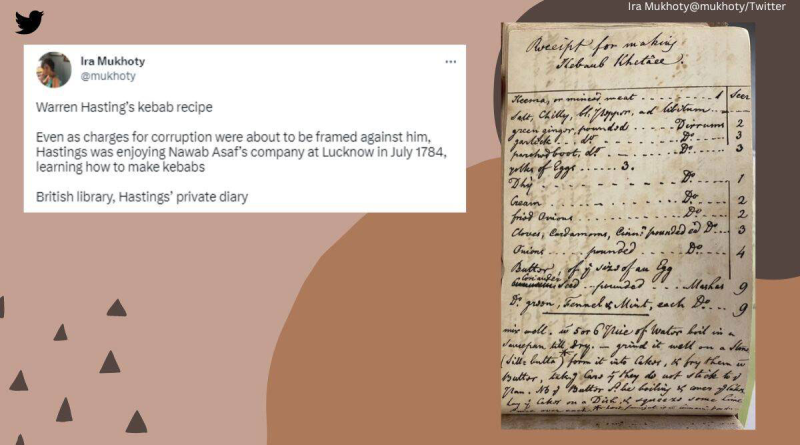 Ira Mukhoty@mukhoty/Twitter
Ira Mukhoty
@mukhoty
Warren Hasting's kebab recipe
Even as charges for corruption were about to be framed against him,
Hastings was enjoying Nawab Asaf's company at Lucknow in July 1784,
learning how to make kebabs
British library, Hastings' private diary
Receipt for making
Kebaub Khetâee.
Keema, or minced meat 1 Seer
Salt, Chilly, Bl. Pepper, ad libitum
green ginger, pounded Dirrums 2
garlick do. Do. 3
parched boot, do. Do. 3
yolks of Eggs 3.
Dhy Do. 1
Cream Do. 2
fried Onions Do. 2
Cloves, Cardamoms, Cinn. pounded ed Do. 3
Onions pounded Do. 4
Butter, of ye size of an Egg
Coriander seed pounded Mashas 9
Do. green, Fennel & Mint, each Do. 9
mix well. in 5 or 6 of Water boil in a
Saucepan till dry. – grind it well on a Stone
(Sill butta) form it into Cakes, & fry them in
Butter, taking Care yt they do not stick to ye
Pan. NB ye Butter Sd. be boiling &
lay ye Cakes on a Dish, & squeeze some Lime